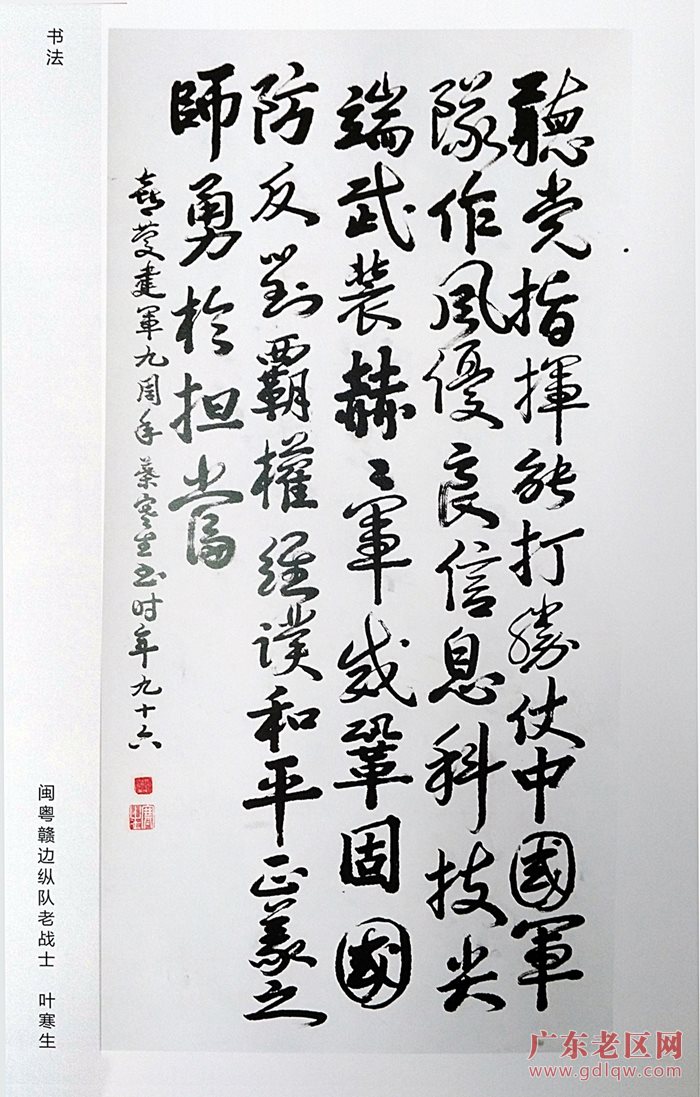 聽党指揮能打勝仗中國軍
隊作風優良信息科技尖
端武装赫々軍威鞏固國
防反對霸權維護和平正義之
師勇於担當
喜慶建軍九周年葉寒生书时年九十六
书法
闽粤赣边纵队老战士 叶寒生
广东老区网
www.gdlqw.com